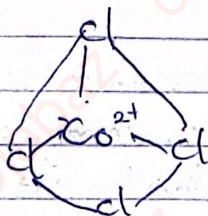 Cl
Co²⁺
Cl
Cl
Cl